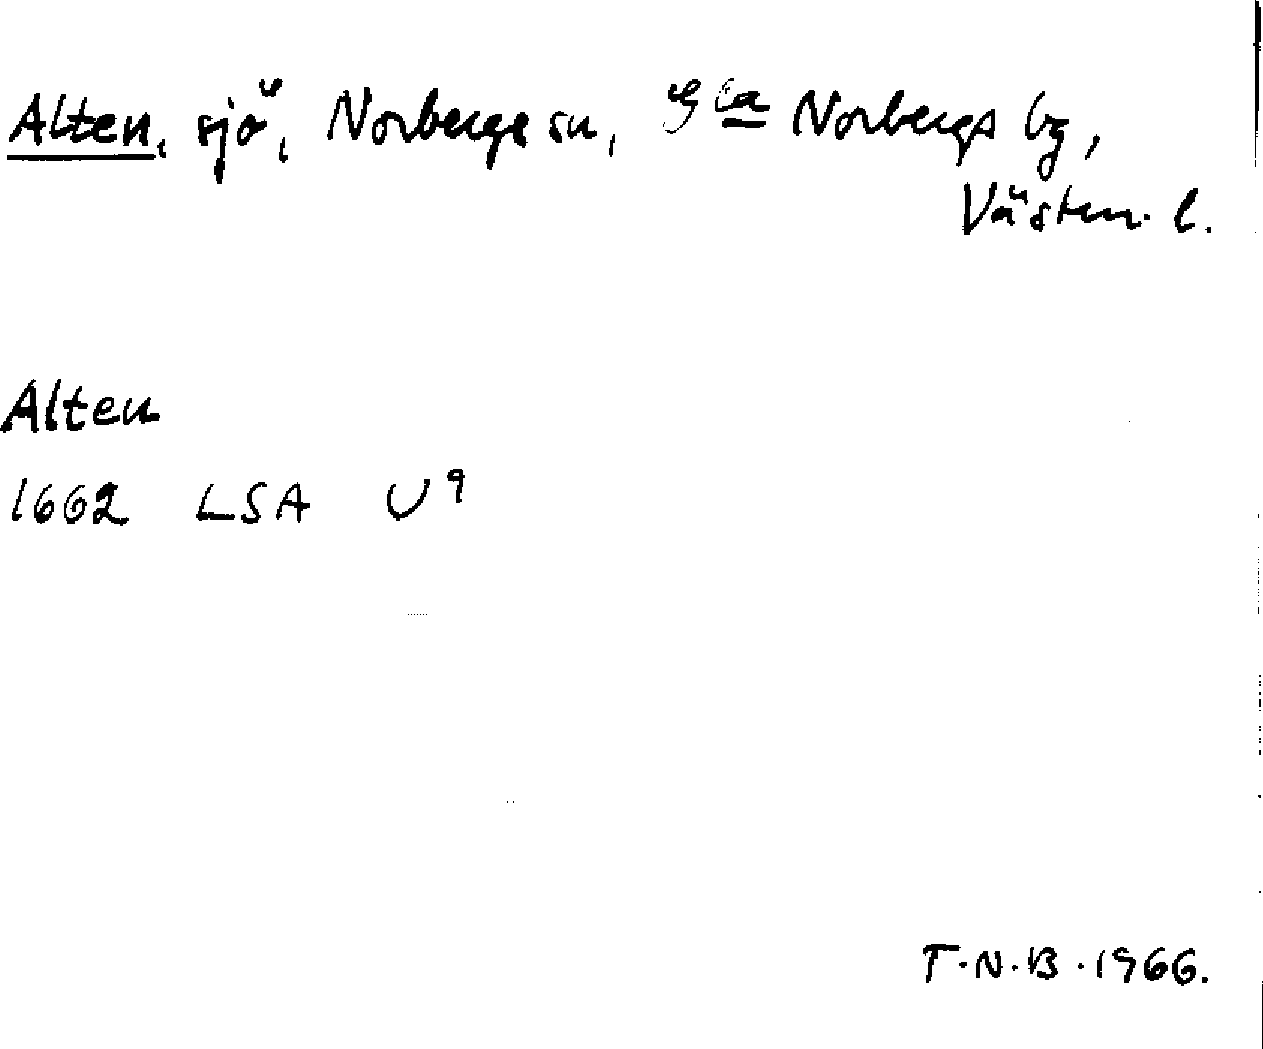 Alten, sjö, Norbergs sn, Gla Norbergs bg,
Västm. l.
Alten
1662 LSA U 9
T.N.B. 1966.